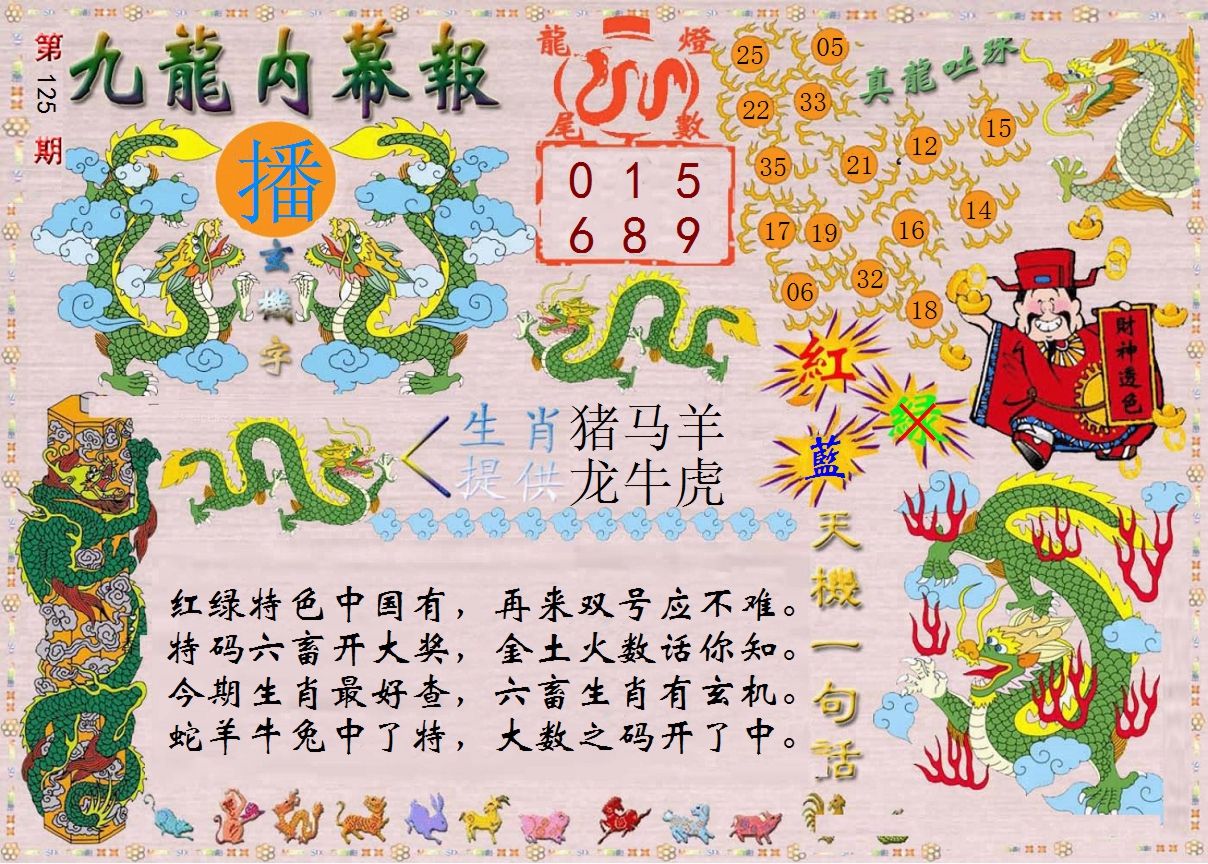 第125期
九龍内幕報
播
玄機字
龍燈尾數
0 1 5
6 8 9
真龍吐珠
25 05
22 33
35 21 12 15
17 19 16 14
06 32 18
財神透色
紅
绿
藍
生肖提供
猪马羊
龙牛虎
天機一句話
红绿特色中国有，再来双号应不难。
特码六畜开大奖，金土火数话你知。
今期生肖最好查，六畜生肖有玄机。
蛇羊牛兔中了特，大数之码开了中。